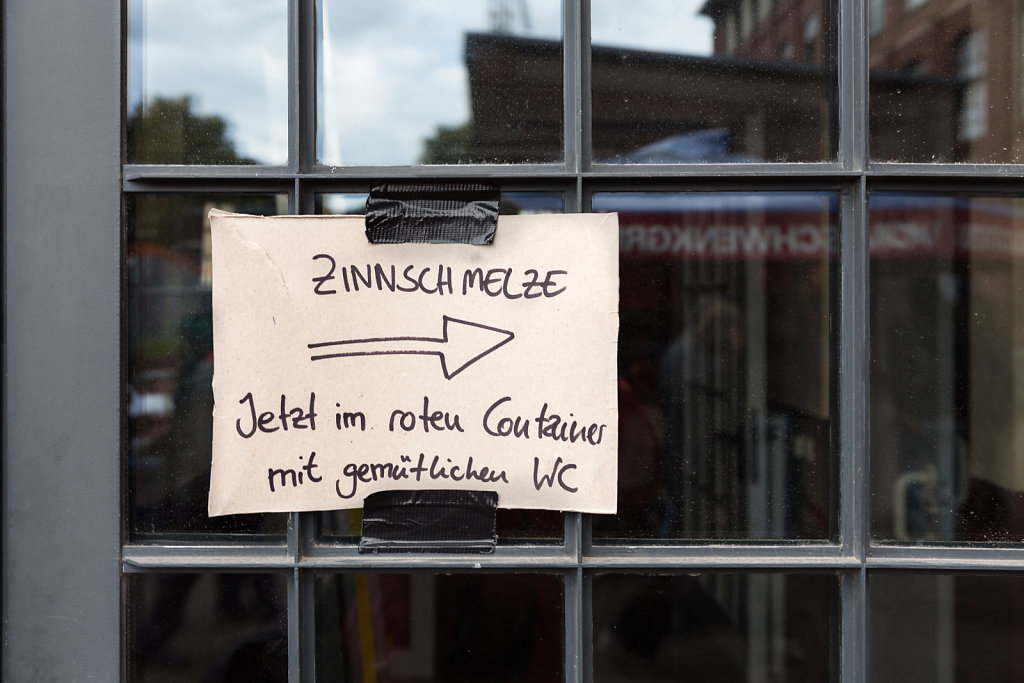 ZINNSCHMELZE
Jetzt im roten Container
mit gemütlichen WC